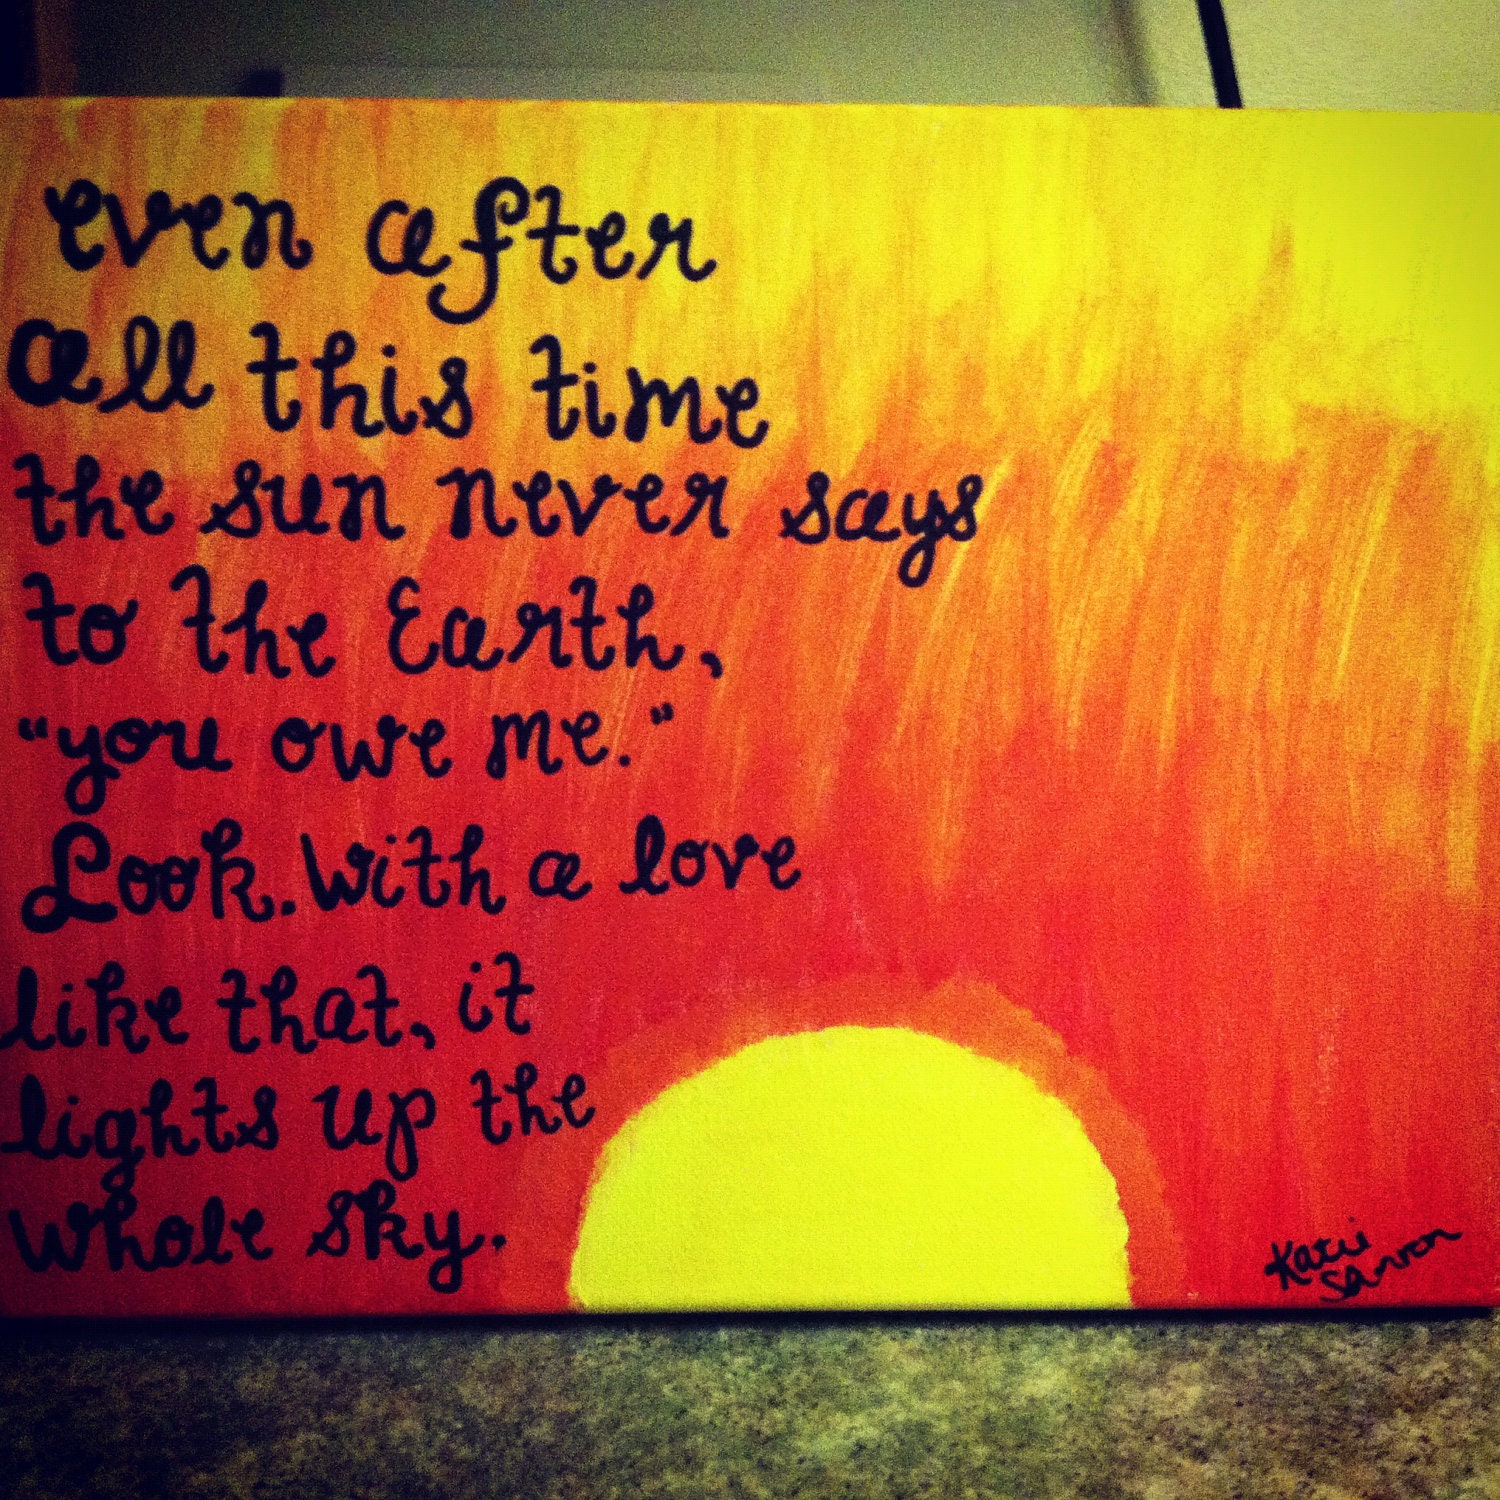 even after
all this time
the sun never says
to the Earth,
"you owe me."
Look. With a love
like that, it
lights up the
whole sky.
Katie